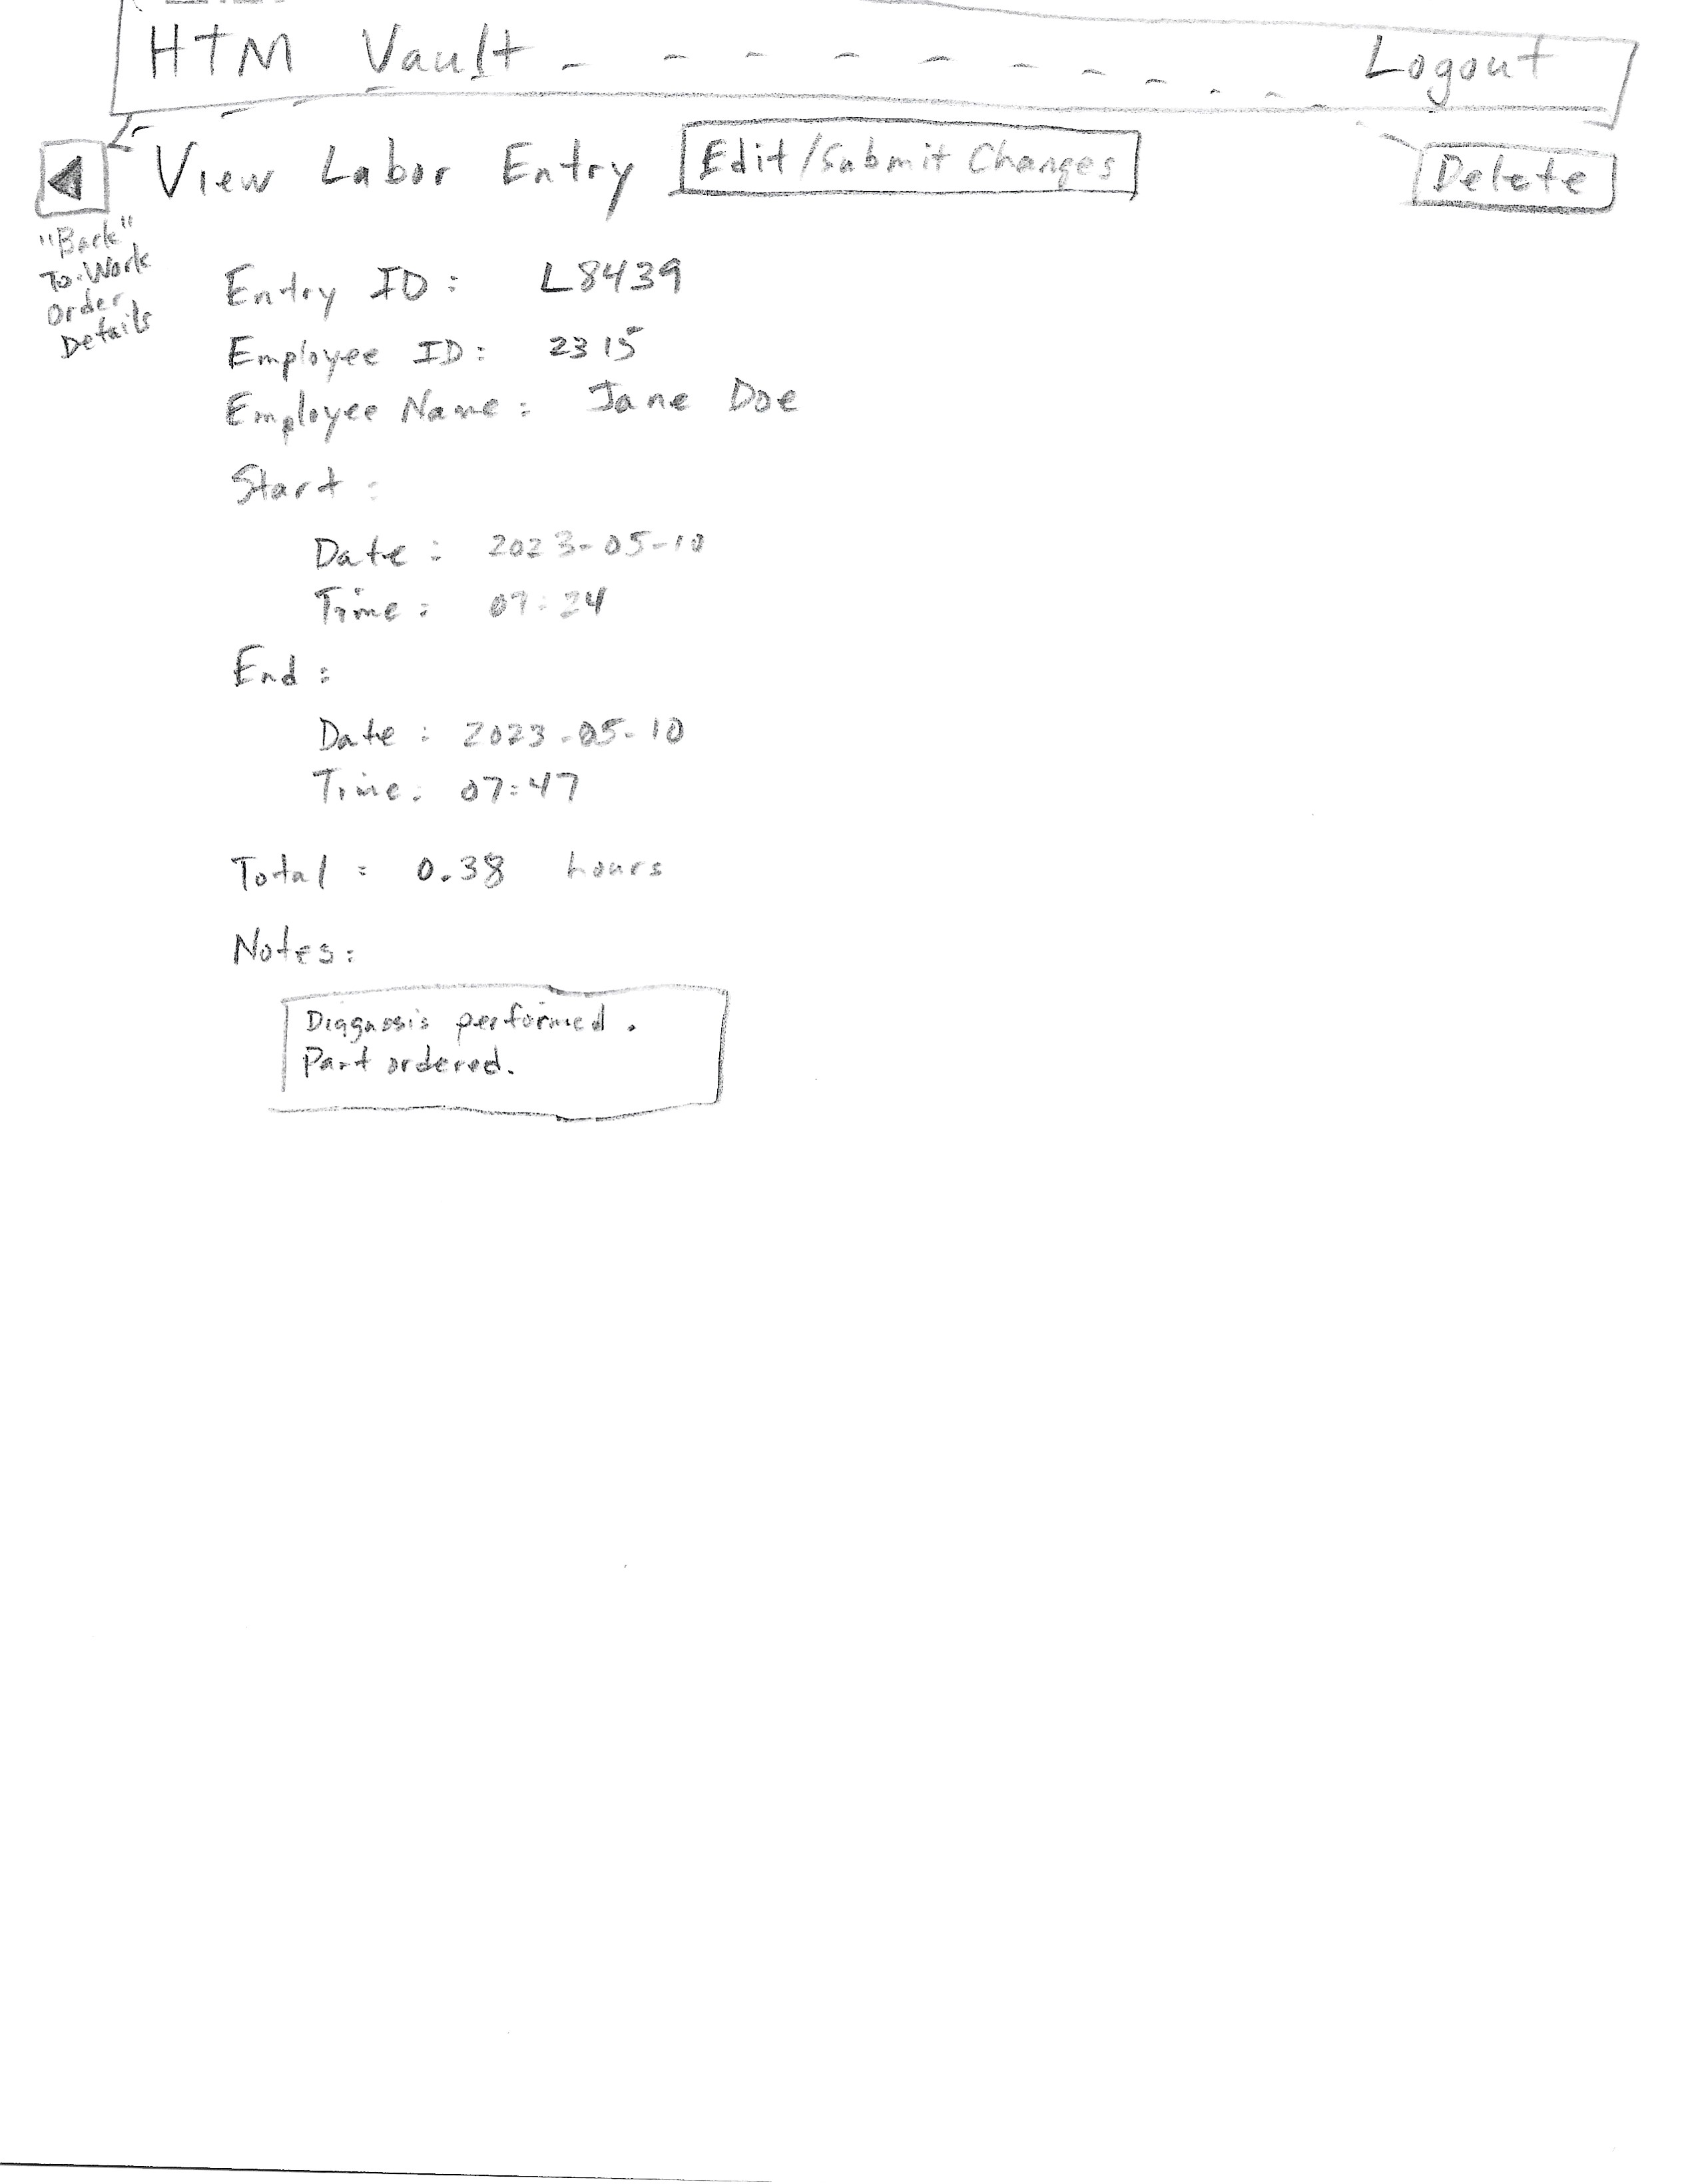 HTM Vault - - - - - - - - - - Logout
View Labor Entry Edit/Submit Changes Delete
"Back"
To Work
Order
Details
Entry ID: L8439
Employee ID: 2315
Employee Name: Jane Doe
Start:
Date: 2023-05-10
Time: 07:24
End:
Date: 2023-05-10
Time: 07:47
Total: 0.38 hours
Notes:
Diagnosis performed.
Part ordered.